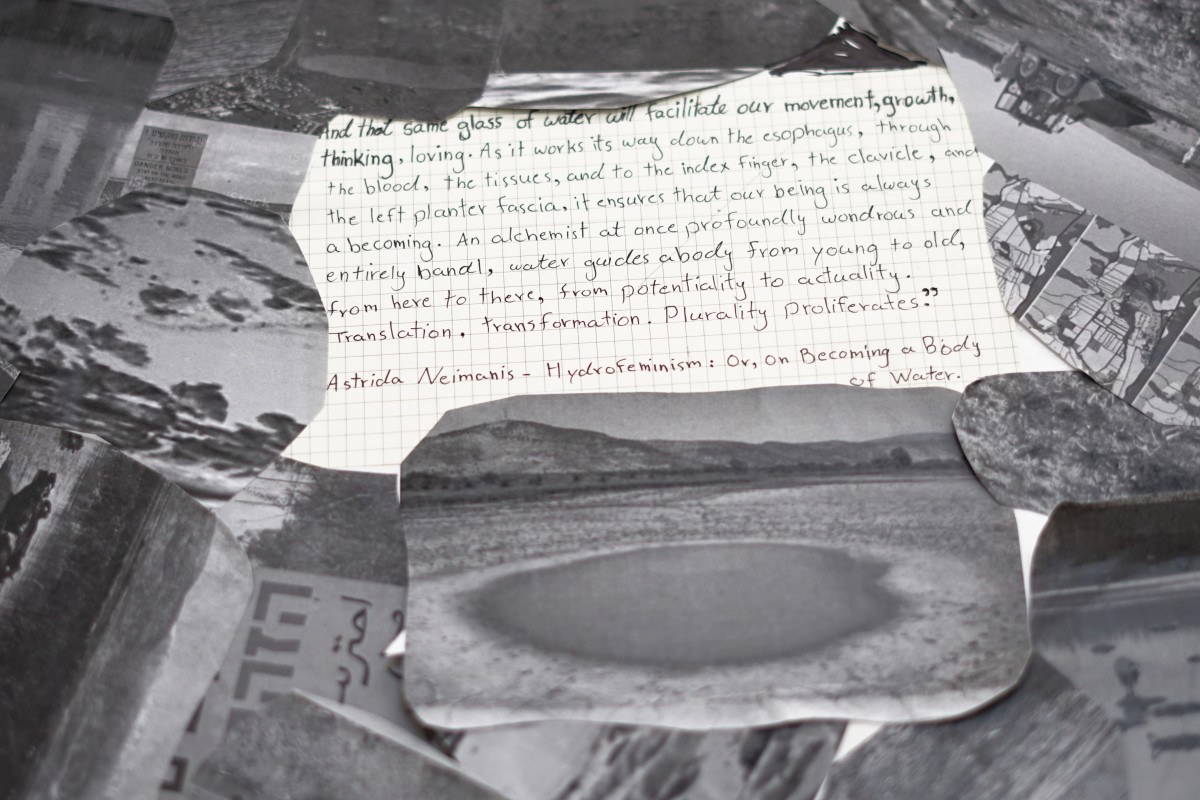 And that same glass of water will facilitate our movement, growth,
thinking, loving. As it works its way down the esophagus, through
the blood, the tissues, and to the index finger, the clavicle, and
the left planter fascia, it ensures that our being is always
a becoming. An alchemist at once profoundly wondrous and
entirely banal, water guides a body from young to old,
from here to there, from potentiality to actuality.
Translation, transformation. Plurality Proliferates."
Astrida Neimanis - Hydrofeminism: Or, On Becoming a Body
of Water.